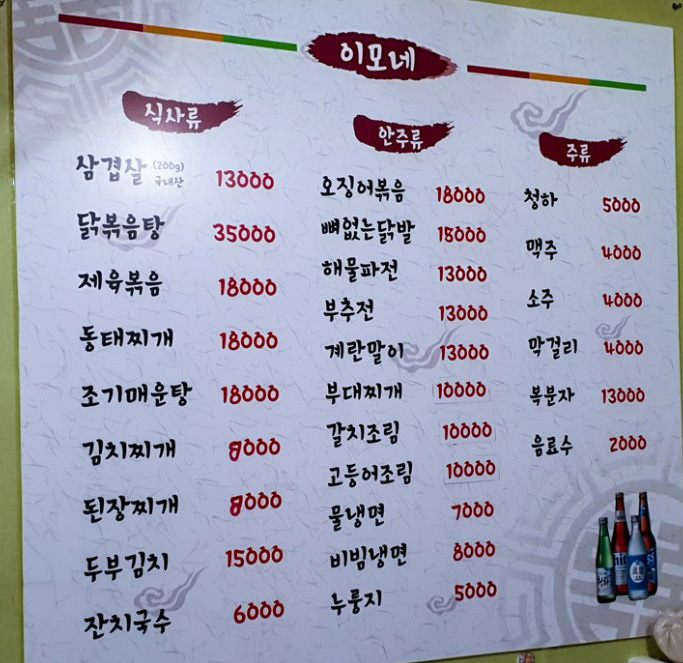 이모네
식사류
삼겹살 (200g) 국내산 13000
닭볶음탕 35000
제육볶음 18000
동태찌개 18000
조기매운탕 18000
김치찌개 8000
된장찌개 8000
두부김치 15000
잔치국수 6000
안주류
오징어볶음 18000
뼈없는닭발 15000
해물파전 13000
부추전 13000
계란말이 13000
부대찌개 10000
갈치조림 10000
고등어조림 10000
물냉면 7000
비빔냉면 8000
누룽지 5000
주류
청하 5000
맥주 4000
소주 4000
막걸리 4000
복분자 13000
음료수 2000